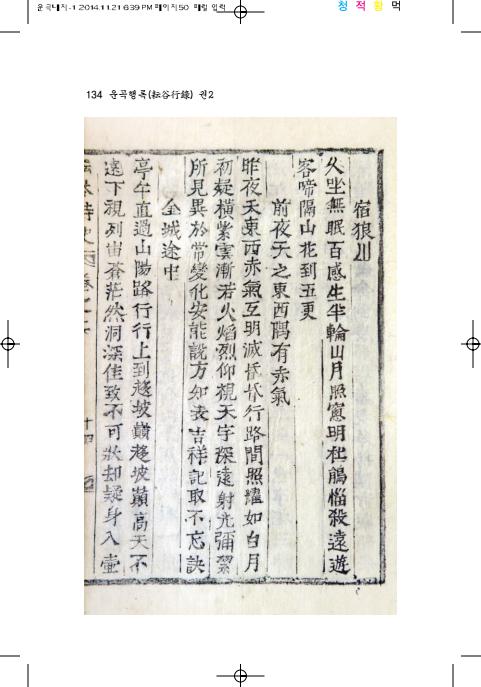 운곡내지-1 2014.11.21 6:39 PM 페이지50 매킬 입력
청 적 황 먹
134 운곡행록(耘谷行錄) 권2
宿狼川
久坐無眠百感生半輪山月照窻明杜鵑惱殺遠遊
客啼隔山花到五更
前夜天之東西隅有赤氣
昨夜天東西赤氣互明滅恠恠行路間照耀如白月
初疑橫紫雲漸若火焰烈仰視天宇深遠射光彌潔
所見異於常變化安能說方知表吉祥記取不忘訣
金城途中
亭午直過山陽路行行上到趍坡巓趍坡巓高天不
遠下視列宙蒼茫然洞深佳致不可狀却疑身入壺